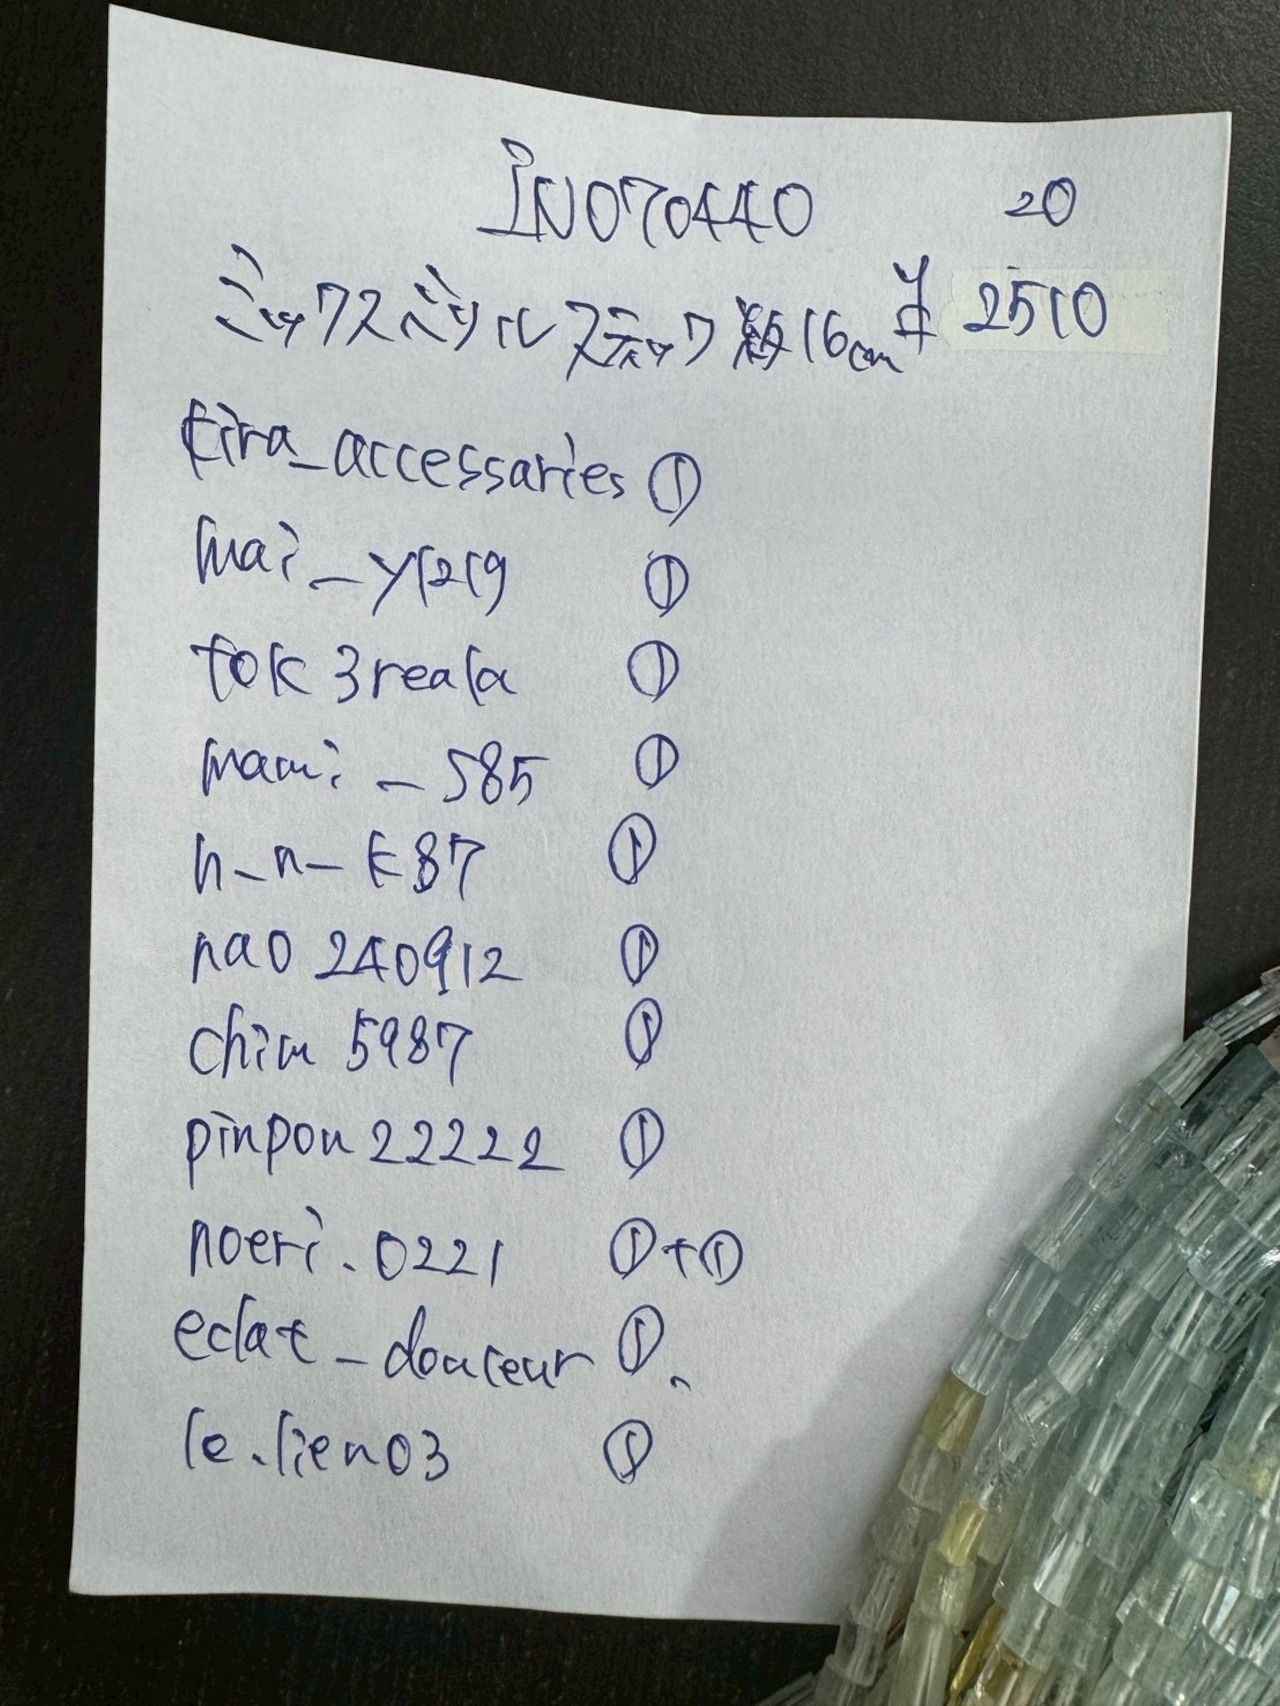 IN070440 20
ミックスベリル スティック 約16cm ¥2510
kira_accessaries ①
mai_y1219 ①
tok3reala ①
mami_585 ①
h_n_k87 ①
nao240912 ①
chim5987 ①
pinpon22222 ①
noeri.0221 ①+①
eclat_douceur ①
le.lien03 ①